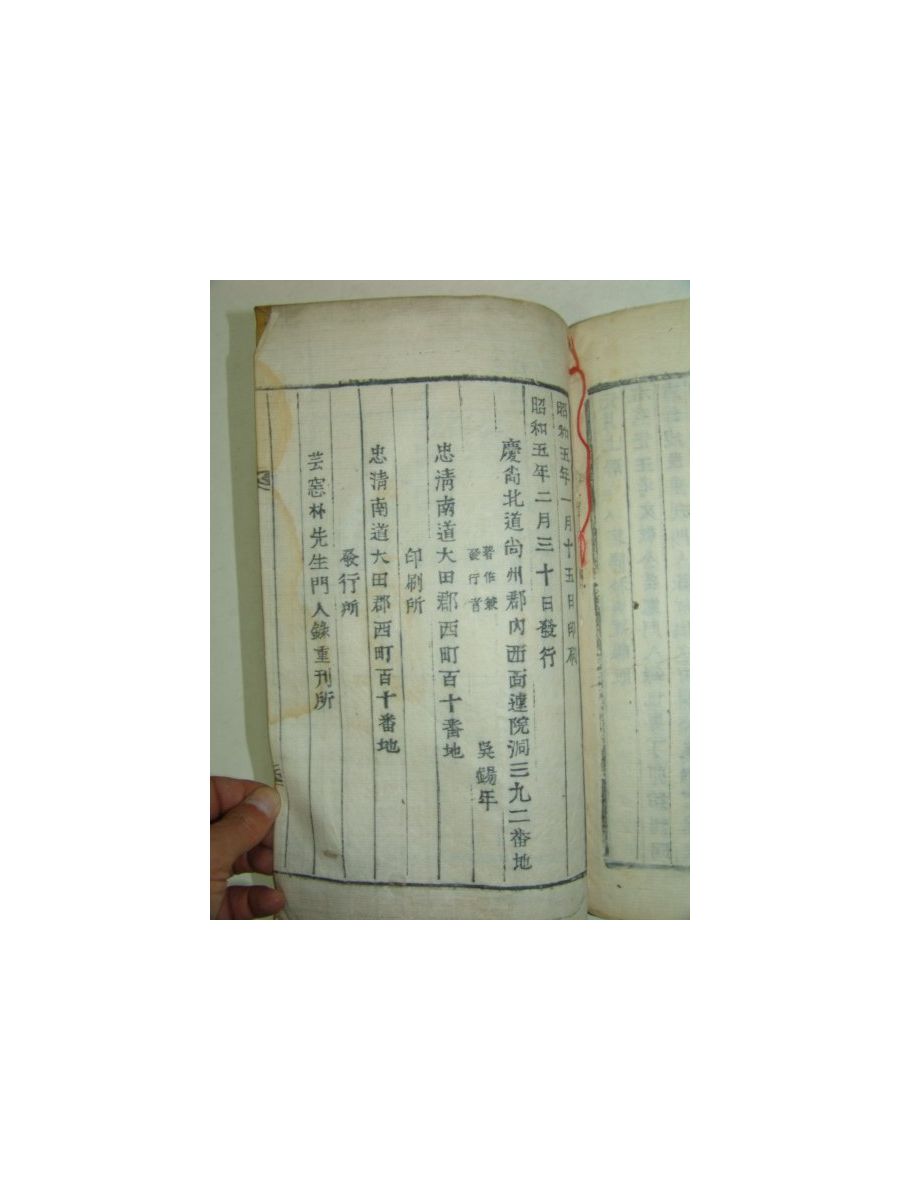 昭和五年一月十五日印刷
昭和五年二月三十日發行
慶尙北道尙州郡內西面蓮院洞三九二番地
著作兼
發行者
吳錫年
忠淸南道大田郡西町百十番地
印刷所
忠淸南道大田郡西町百十番地
發行所
芸窓朴先生門人錄重刊所